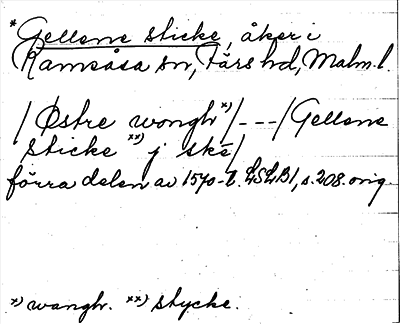 *Gellene sticke, åker i
Ramsåsa sn, Färs hd, Malm. l.
/ Østre wongh *)/---/Gellene
sticke **) j skè/
förra delen av 1570-t. LSLB1, s. 208. orig
*) wangh. **) stycke.